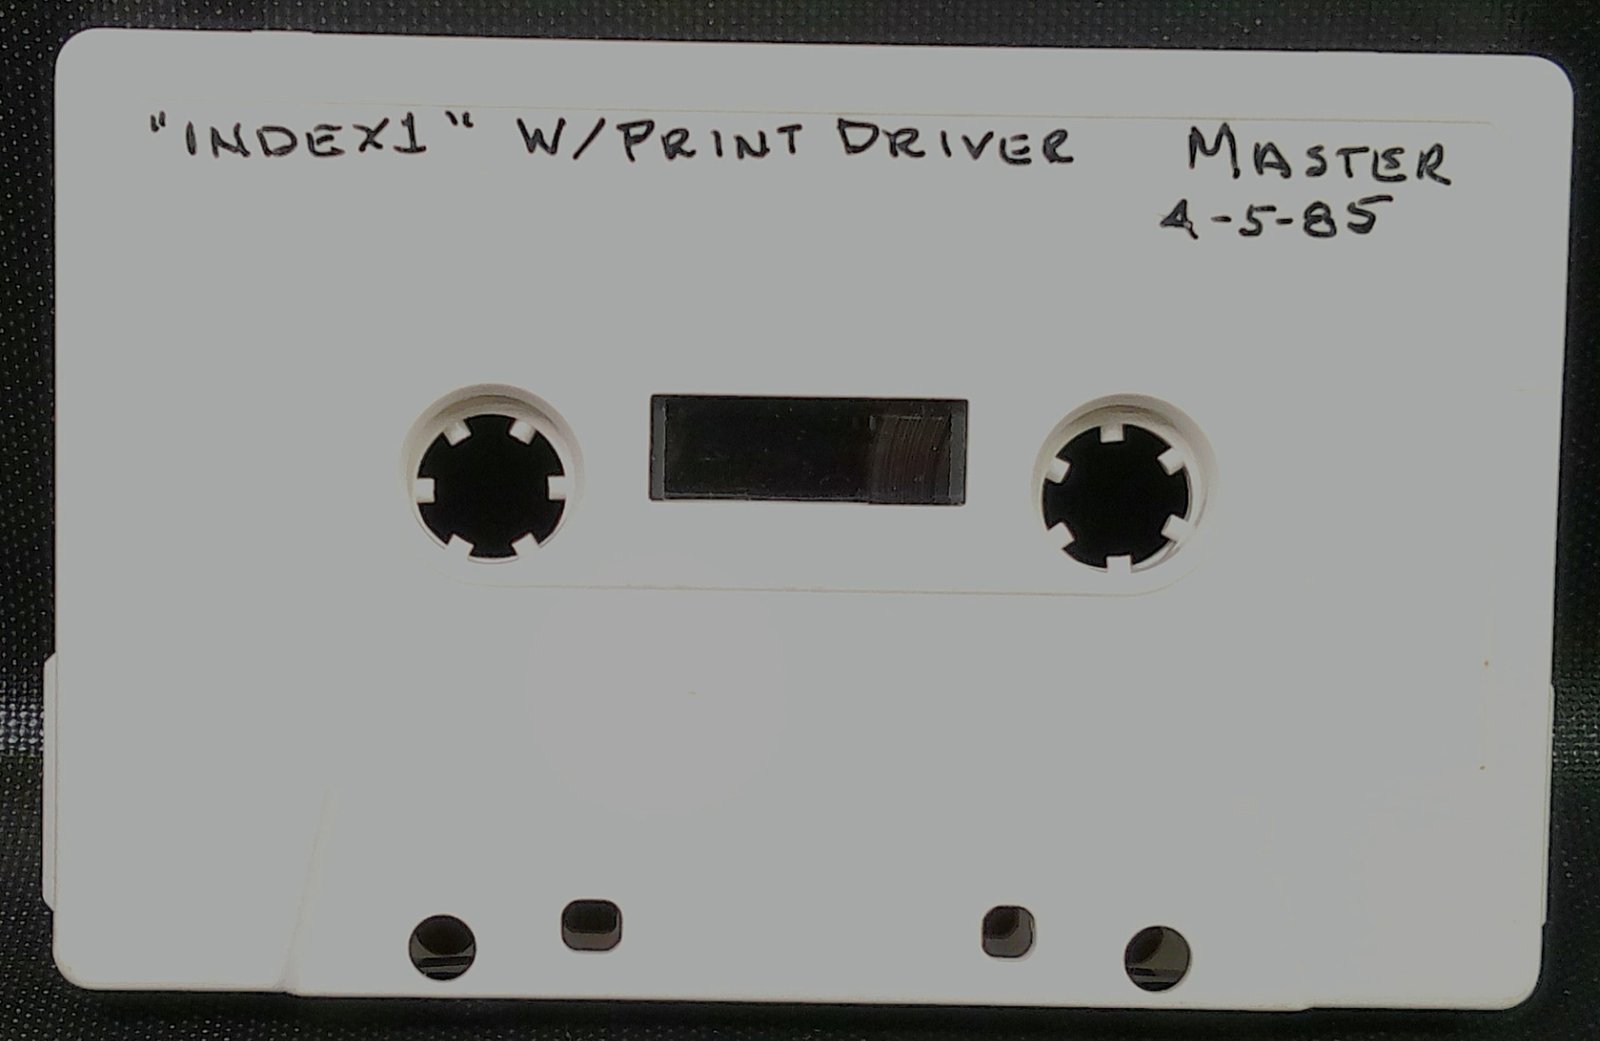 "INDEX1" W/PRINT DRIVER MASTER
4-5-85